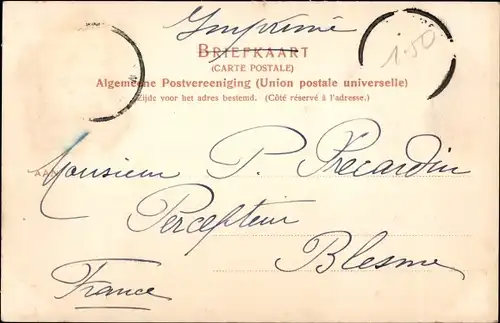 Imprimé
BRIEFKAART
(CARTE POSTALE)
Algemeene Postvereeniging (Union postale universelle)
Zijde voor het adres bestemd. (Côté réservé à l'adresse.)
1.50
Monsieur P. Précardin
Percepteur
Blesme
France